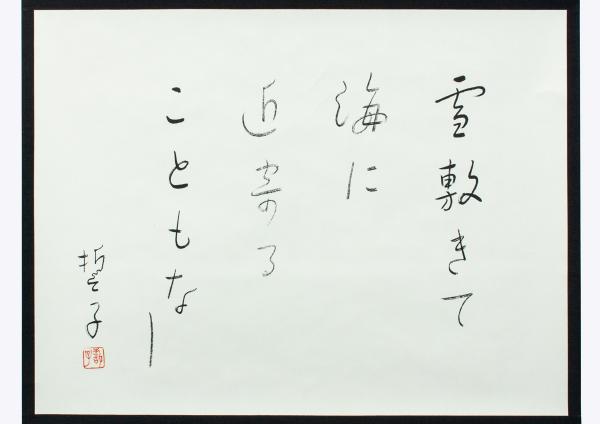 雪敷きて
海に
近寄る
こともなし
誓子